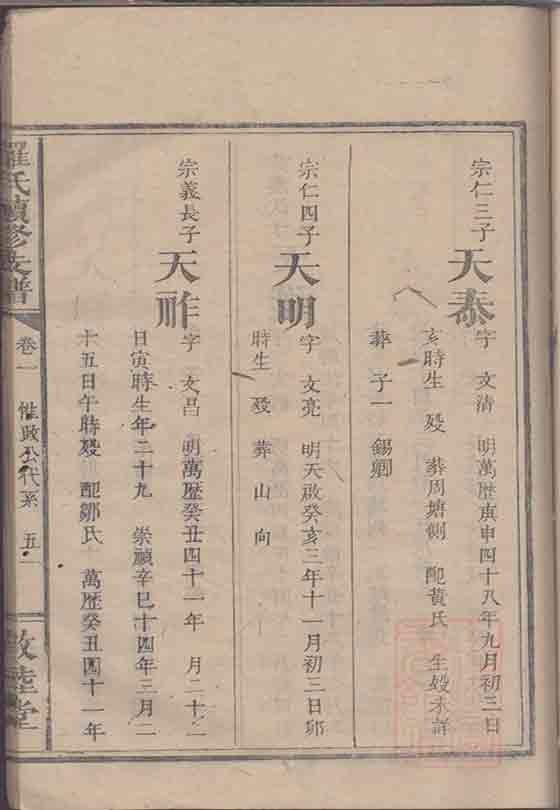 宗仁三子
天泰
字 文清 明萬歷庚申四十八年九月初三日
亥時生 殁 葬周塘側 配黃氏 生殁未詳
葬 子一 錫卿
宗仁四子
天明
字 文亮 明天啟癸亥三年十一月初三日卯
時生 殁 葬 山 向
宗義長子
天祚
字 文昌 明萬歷癸丑四十一年 月二十二
日寅時生年二十九 崇禎辛巳十四年三月二
十五日午時殁 配鄒氏 萬歷癸丑四十一年
羅氏續修支譜
卷一 惟政公代系 五一
敦睦堂